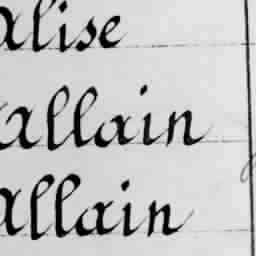 alise
allain
allain